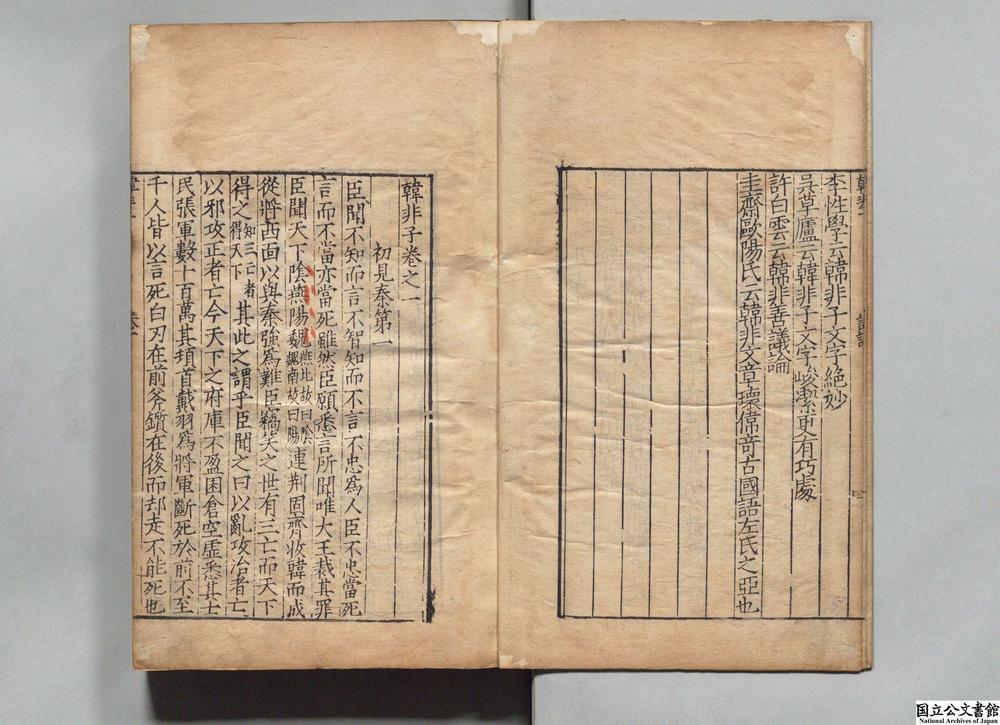 李性學云韓非子文字絶妙
吳草廬云韓非子文字峻潔更有巧處
許白雲云韓非善議論
圭齋歐陽氏云韓非文章瓌偉奇古國語左氏之亞也
韓非子卷之一
初見秦第一
臣聞不知而言不智知而不言不忠爲人臣不忠當死
言而不當亦當死雖然臣願悉言所聞唯大王裁其罪
臣聞天下陰燕陽魏燕北故曰陰魏南故曰陽連荆固齊收韓而成
從將西面以與秦強爲難臣竊笑之世有三亡而天下
得之知三亡者得天下其此之謂乎臣聞之曰以亂攻治者亡
以邪攻正者亡今天下之府庫不盈囷倉空虛悉其士
民張軍數十百萬其頓首戴羽爲將軍斷死於前不至
千人皆以言死白刃在前斧鑕在後而却走不能死也
国立公文書館
National Archives of Japan